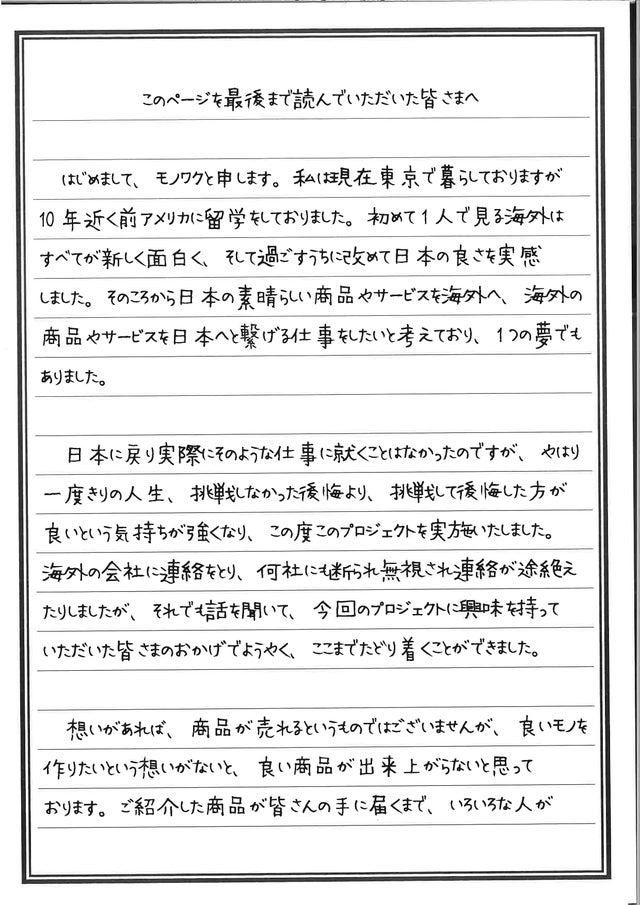 このページを最後まで読んでいただいた皆さまへ
はじめまして、モノワクと申します。私は現在東京で暮らしておりますが
10年近く前アメリカに留学をしておりました。初めて1人で見る海外は
すべてが新しく面白く、そして過ごすうちに改めて日本の良さを実感
しました。そのころから日本の素晴らしい商品やサービスを海外へ、海外の
商品やサービスを日本へと繋げる仕事をしたいと考えており、1つの夢でも
ありました。
日本に戻り実際にそのような仕事に就くことはなかったのですが、やはり
一度きりの人生、挑戦しなかった後悔より、挑戦して後悔した方が
良いという気持ちが強くなり、この度このプロジェクトを実施いたしました。
海外の会社に連絡をとり、何社にも断られ無視され連絡が途絶え
たりしましたが、それでも話を聞いて、今回のプロジェクトに興味を持って
いただいた皆さまのおかげでようやく、ここまでたどり着くことができました。
想いがあれば、商品が売れるというものではございませんが、良いモノを
作りたいという想いがないと、良い商品が出来上がらないと思って
おります。ご紹介した商品が皆さんの手に届くまで、いろいろな人が